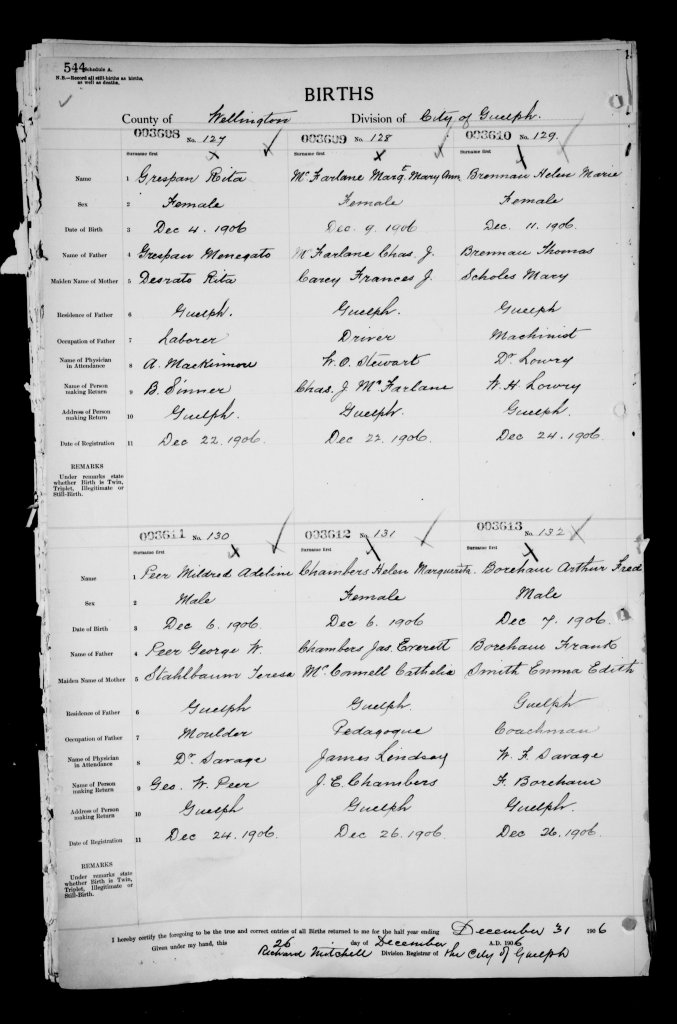 544 Schedule A.
N.B.—Record all still-births as births,
as well as deaths.
BIRTHS
County of Wellington Division of City of Guelph.
003608 No. 127 003609 No. 128 003610 No. 129.
Surname first Surname first Surname first
Name 1 Grespan Rita McFarlane Margt Mary Ann Brennan Helen Marie
Sex 2 Female Female Female
Date of Birth 3 Dec 4. 1906 Dec. 9. 1906 Dec. 11. 1906.
Name of Father 4 Grespan Menegato McFarlane Chas. J. Brennan Thomas
Maiden Name of Mother 5 Desrato Rita Carey Frances J. Scholes Mary
Residence of Father 6 Guelph. Guelph. Guelph
Occupation of Father 7 Laborer Driver Machinist
Name of Physician
in Attendance 8 A. MacKinnon W. O. Stewart Dr. Lowry
Name of Person
making Return 9 B. Sinner Chas. J. McFarlane W. H. Lowry
Address of Person
making Return 10 Guelph. Guelph. Guelph.
Date of Registration 11 Dec 22. 1906. Dec 22. 1906. Dec 24. 1906.
REMARKS
Under remarks state
whether Birth is Twin,
Triplet, Illegitimate or
Still-Birth.
003611 No. 130 003612 No. 131 003613 No. 132
Surname first Surname first Surname first
Name 1 Peer Mildred Adeline Chambers Helen Marguerite. Boreham Arthur Fred
Sex 2 Male Female Male
Date of Birth 3 Dec 6. 1906. Dec 6. 1906 Dec 7. 1906.
Name of Father 4 Peer George W. Chambers Jas. Everett Boreham Frank
Maiden Name of Mother 5 Stahlbaum Teresa McConnell Cathelia Smith Emma Edith
Residence of Father 6 Guelph Guelph. Guelph
Occupation of Father 7 Moulder Pedagogue Coachman
Name of Physician
in Attendance 8 Dr. Savage James Lindsay W. F. Savage
Name of Person
making Return 9 Geo. W. Peer J. E. Chambers F. Boreham
Address of Person
making Return 10 Guelph Guelph Guelph.
Date of Registration 11 Dec 24. 1906. Dec 26. 1906. Dec 26. 1906.
REMARKS
Under remarks state
whether Birth is Twin,
Triplet, Illegitimate or
Still-Birth.
I hereby certify the foregoing to be the true and correct entries of all Births returned to me for the half year ending December 31 1906
Given under my hand, this 26 day of December A.D. 1906
Richard Mitchell Division Registrar of the City of Guelph